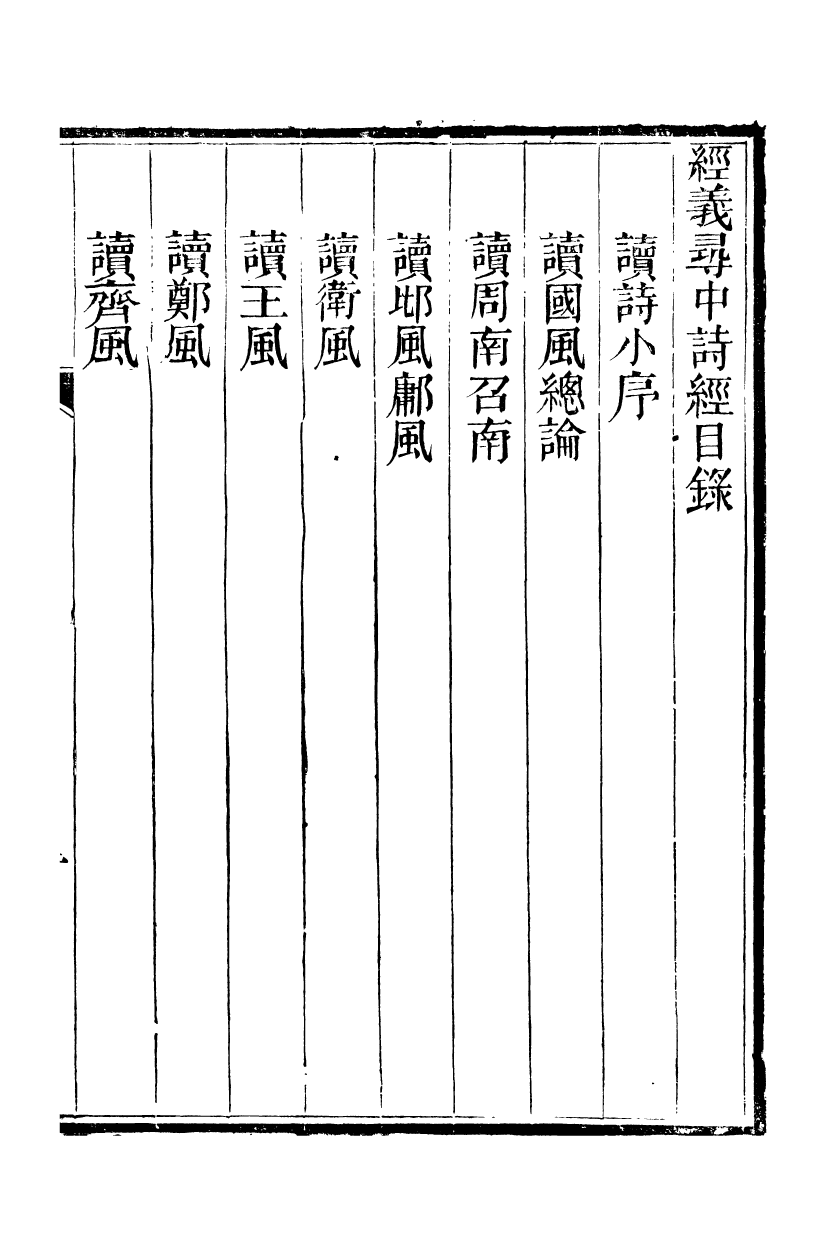 經義尋中詩經目錄
讀詩小序
讀國風總論
讀周南召南
讀邶風鄘風
讀衛風
讀王風
讀鄭風
讀齊風